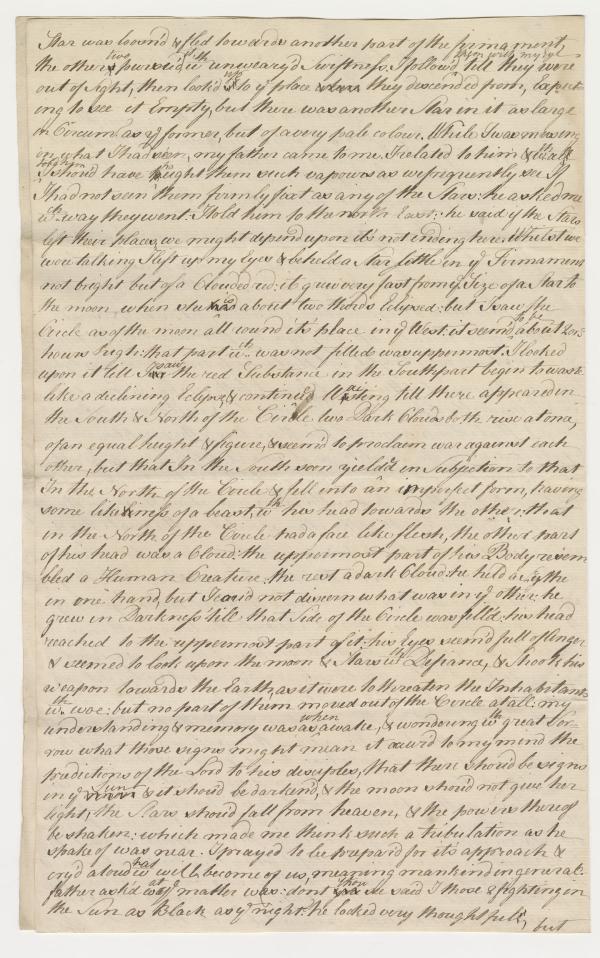 Star was loos'd & fled towards another part of the firmament,
the other two pursu'd it wth unweary'd Swiftness, I follow'd them with my eye till they were
out of sight, then look'd up to ye place they descended from, Expect
ing to see it Empty, but there was another Star in it as large
in Circum as ye former, but of a very pale colour. While I was museing
on what I had seen, my father came to me, I related to him &
I should have thought them such vapours as we frequently see If
I had not seen them firmly fixt as any of the Stars: he asked me
wch way they went: I told him to the north East: he said if the Stars
left their places, we might depend upon it's not ending here: Whilst we
were talking I left up my eyes & beheld a Star little in ye Firmament
not bright but of a Clouded red: it grew very fast from ye Size of a Star to
the moon, when she was about two thirds Eclipsed: but I saw the
Circle as of the moon all round its place in ye West: it seem'd to be about 2 or 3
hours high: that part wch was not filled was uppermost: I looked
upon it till I saw the red Substance in the South part begin to waste
like a declining Eclipse, & continued wasting till there appeared in
the South & North of the Circle two Dark Clouds both rise at once,
of an equal height & figure, & seem'd to proclaim war against each
other, but that In the South soon yield'd in Subjection to that
In the North of the Circle & fell into an imperfect form, having
some likeness of a beast, wth his head towards the other: that
in the North of the Circle had a face like flesh, the other part
of his head was a Cloud: the uppermost part of his Body resem
bled a Human Creature: the rest a dark Cloud: he held a sythe
in one hand, but I could not discern what was in ye other: he
grew in Darkness till that Side of the Circle was fill'd: his head
reached to the uppermost part of it: his Eyes seem'd full of
& seemed to look upon the moon & Stars wth Defiance, & shook his
weapon towards the Earth, as it were to threaten the Inhabitants
wth woe: but no part of them moved out of the Circle at all: my
understanding & memory was as when awake, & wondering wth great Sor-
row what those signs might mean it occur'd to my mind the
predictions of the Lord to his disciples, that there should be signs
in ye Sun & it should be darkened, & the moon should not give her
light, the Stars should fall from heaven, & the powers thereof
be shaken: which made me think such a tribulation as he
spake of was near. I prayed to be prepar'd for it's approach &
cry'd aloud what will become of us, meaning mankind in general:
father ask'd what ye matter was: dont thou see said I those 2 fighting in
the Sun as Black as ye night: he looked very thoughtfull,
but